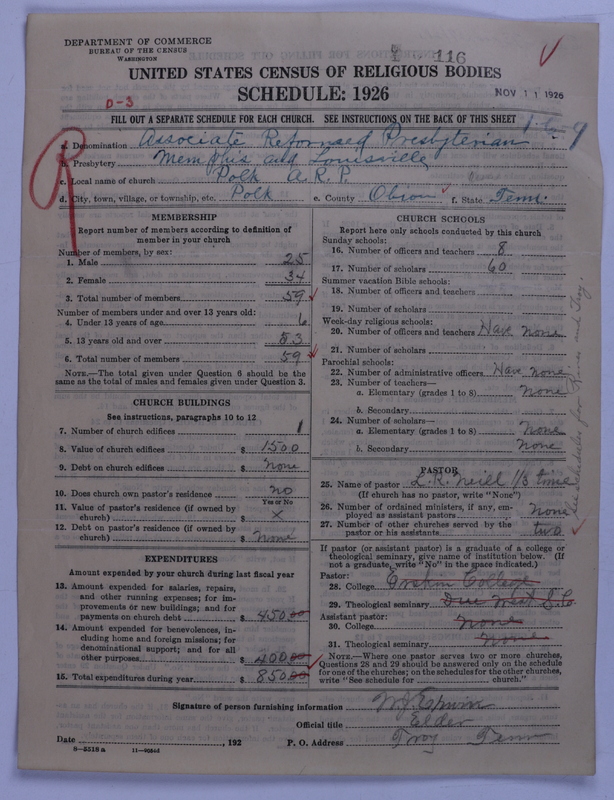 DEPARTMENT OF COMMERCE
BUREAU OF THE CENSUS
WASHINGTON
116
UNITED STATES CENSUS OF RELIGIOUS BODIES
SCHEDULE: 1926
NOV 11 1926
D-3
FILL OUT A SEPARATE SCHEDULE FOR EACH CHURCH. SEE INSTRUCTIONS ON THE BACK OF THIS SHEET
R
a. Denomination Associate Reformed Presbyterian
b. Presbytery Memphis and Louisville
c. Local name of church Polk A.R.P.
d. City, town, village, or township, etc. Polk e. County Obion f. State Tenn.
MEMBERSHIP
Report number of members according to definition of
member in your church
Number of members, by sex:
1. Male 25
2. Female 34
3. Total number of members 59
Number of members under and over 13 years old:
4. Under 13 years of age 6
5. 13 years old and over 53
6. Total number of members 59
NOTE.—The total given under Question 6 should be the
same as the total of males and females given under Question 3.
CHURCH BUILDINGS
See instructions, paragraphs 10 to 12
7. Number of church edifices 1
8. Value of church edifices $ 1500
9. Debt on church edifices $ none
10. Does church own pastor's residence no
Yes or No
11. Value of pastor's residence (if owned by
church) $ x
12. Debt on pastor's residence (if owned by
church) $ none
EXPENDITURES
Amount expended by your church during last fiscal year
13. Amount expended for salaries, repairs,
and other running expenses; for im-
provements or new buildings; and for
payments on church debt $ 450.00
14. Amount expended for benevolences, in-
cluding home and foreign missions; for
denominational support; and for all
other purposes $ 400.00
15. Total expenditures during year $ 850.00
CHURCH SCHOOLS
Report here only schools conducted by this church
Sunday schools:
16. Number of officers and teachers 8
17. Number of scholars 60
Summer vacation Bible schools:
18. Number of officers and teachers
19. Number of scholars
Week-day religious schools:
20. Number of officers and teachers Have none
21. Number of scholars
Parochial schools:
22. Number of administrative officers Have none
23. Number of teachers—
a. Elementary (grades 1 to 8) none
b. Secondary
24. Number of scholars—
a. Elementary (grades 1 to 8) none
b. Secondary none
PASTOR
25. Name of pastor L.R. Neill 1/3 time
(If church has no pastor, write "None")
26. Number of ordained ministers, if any, em-
ployed as assistant pastors none
27. Number of other churches served by the
pastor or his assistants two
If pastor (or assistant pastor) is a graduate of a college or
theological seminary, give name of institution below. (If
not a graduate, write "No" in the space indicated.)
Pastor:
28. College Erskin College
29. Theological seminary Due West S.C.
Assistant pastor:
30. College none
31. Theological seminary none
NOTE.—Where one pastor serves two or more churches,
Questions 28 and 29 should be answered only on the schedule
for one of the churches; on the schedules for the other churches,
write "See schedule for church."
See Schedules for and Troy.
Signature of person furnishing information W.J. Erwin
Official title Elder
Date , 192 P. O. Address Troy Tenn
8-5518 a